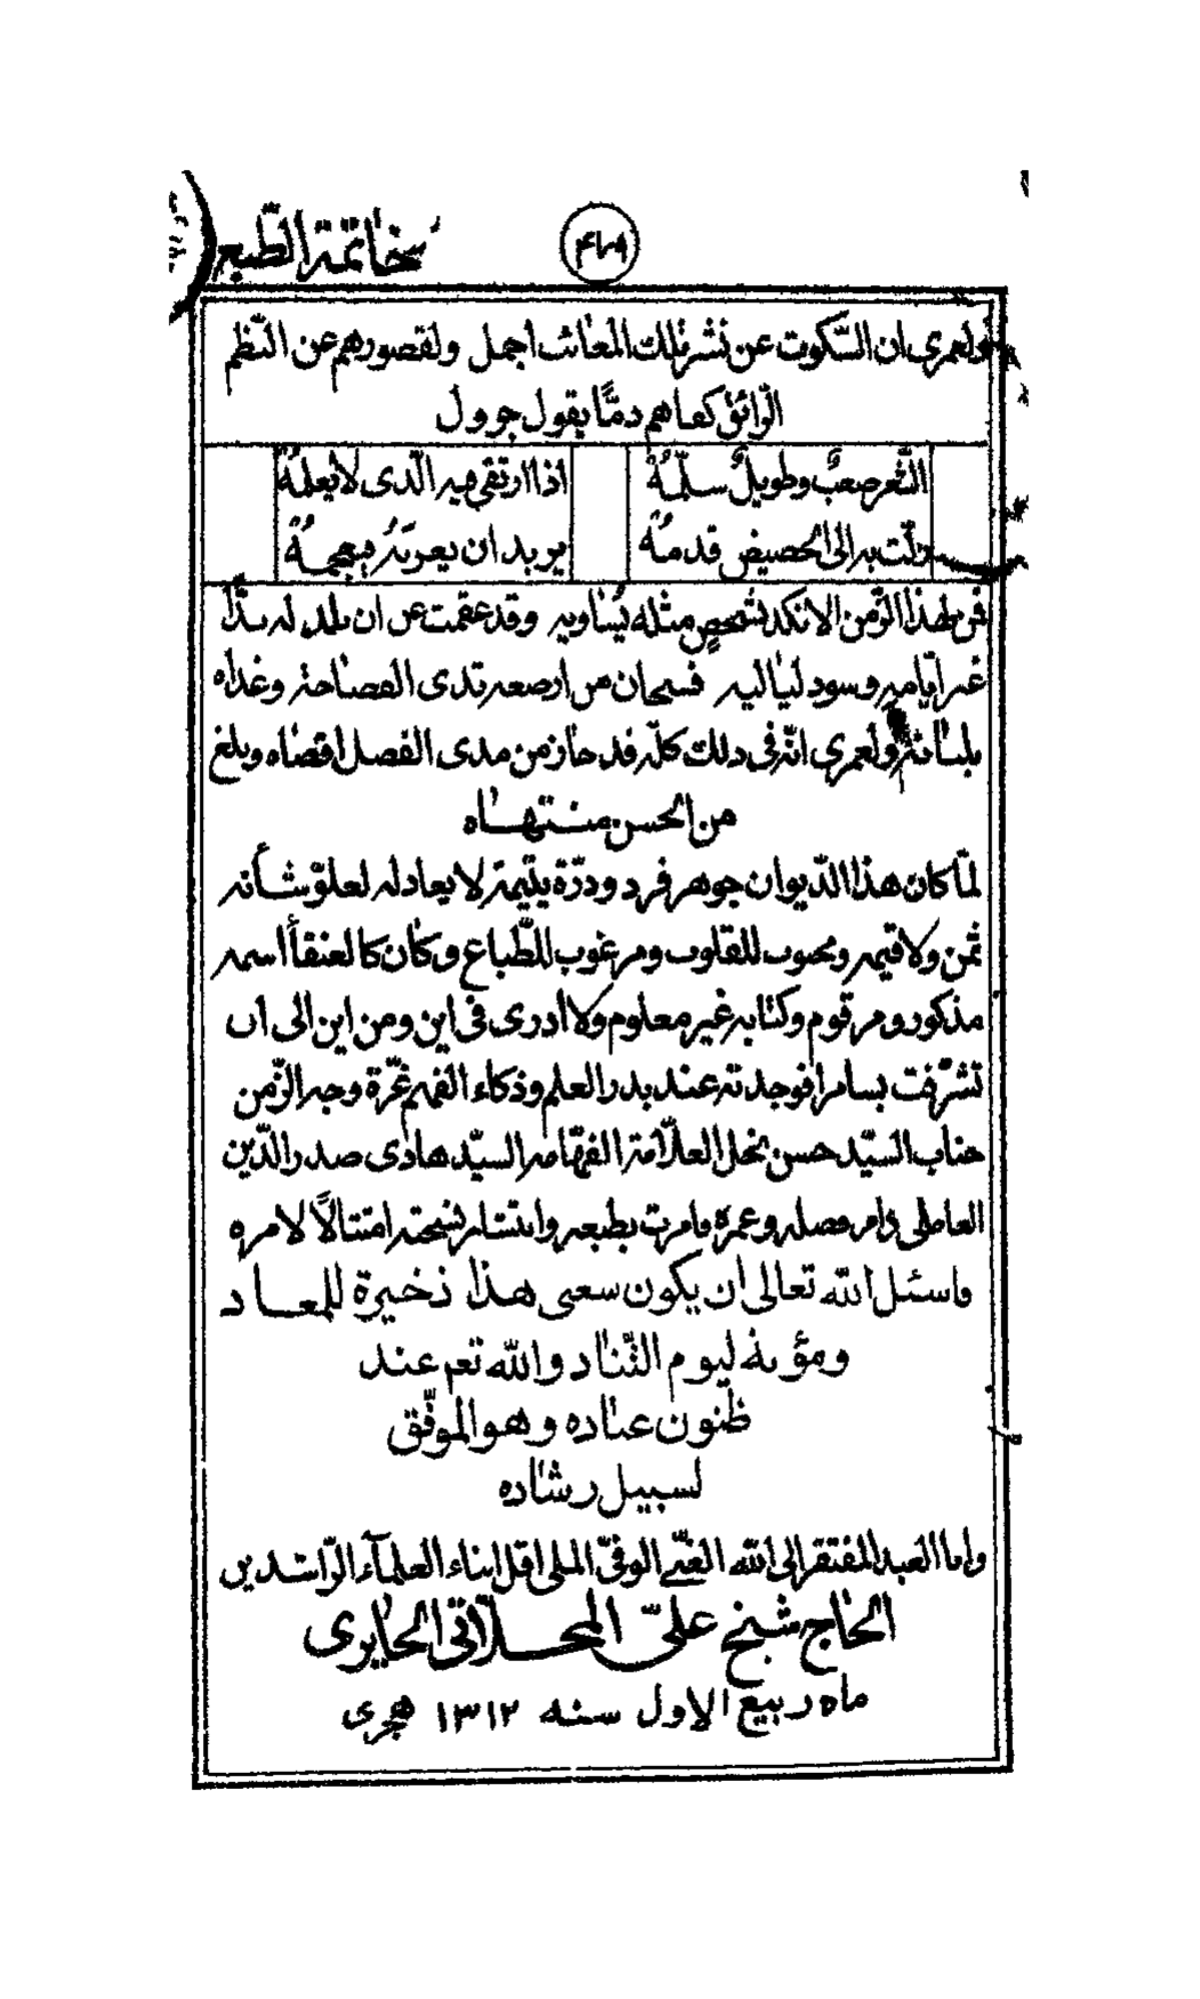 خاتمة الطّبع
ولعمري ان السّكوت عن نشر تلك المعائب اجمل ولقصورهم عن النّظم
الرّائق كفاهم ذمًّا يقول جرول
الشّعر صعبٌ وطويلٌ سلّمهُ اذا ارتقى فيه الّذى لا يعلمهُ
زلّت به الى الحضيض قدمهُ يريد ان يعربَهُ فيعجمهُ
فمن لهذا الزّمن الانكد بشخصٍ مثله يُساويه وقد عقمت عن ان تلد له ندًّا
غر ايّامه وسود لياليه فسبحان من ارضعه ثدى الفصاحة وغذاه
بلبانه ولعمري انّه فى ذلك كلّه قد حاز من مدى الفضل اقصاه وبلغ
من الحسن منتهاه
لمّا كان هذا الدّيوان جوهر فرد ودرّة يتيمة لا يعادله لعلوّ شأنه
ثمن ولا قيمه ومحبوب للقلوب ومرغوب للطّباع وكان كالعنقاأ اسمه
مذكور ومرقوم وكتابه غير معلوم ولا أدرى فى اين ومن اين الى ان
تشرّفت بسامرا فوجدته عند بدر العلم وذكاء الفهم غرّة وجه الزّمن
جناب السّيّد حسن نجل العلّامة الفهّامه السيّد هادى صدر الدّين
العاملى دام فضله وعمره فامرت بطبعه وانتشار نسخته امتثالاً لامره
واسئل الله تعالى ان يكون سعى هذا ذخيرة للمعاد
ومؤنة ليوم التّناد والله تعم عند
ظنون عباده وهو الموفّق
لسبيل رشاده
وانا العبد المفتقر الى الله الغنىّ الوفىّ الملى اقل ابناء العلمآء الرّاشدين
الحاج شيخ علىّ المحلّاتى الحايرى
ماه ربيع الاول سنه ١٣١٢ هجرى